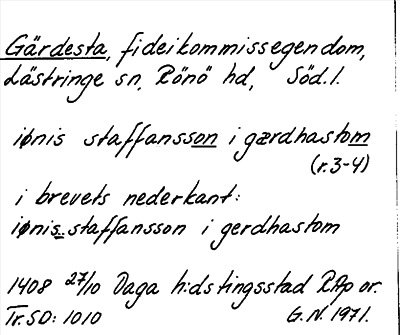 Gärdesta, fideikommissegendom,
Lästringe sn, Rönö hd, Söd. l.
iønis staffansson i gærdhastom
(r. 3-4)
i brevets nederkant:
iønis. staffansson i gerdhastom
1408 27/10 Daga h:ds tingsstad RAp or.
Tr. SD: 1010 G. N. 1971.